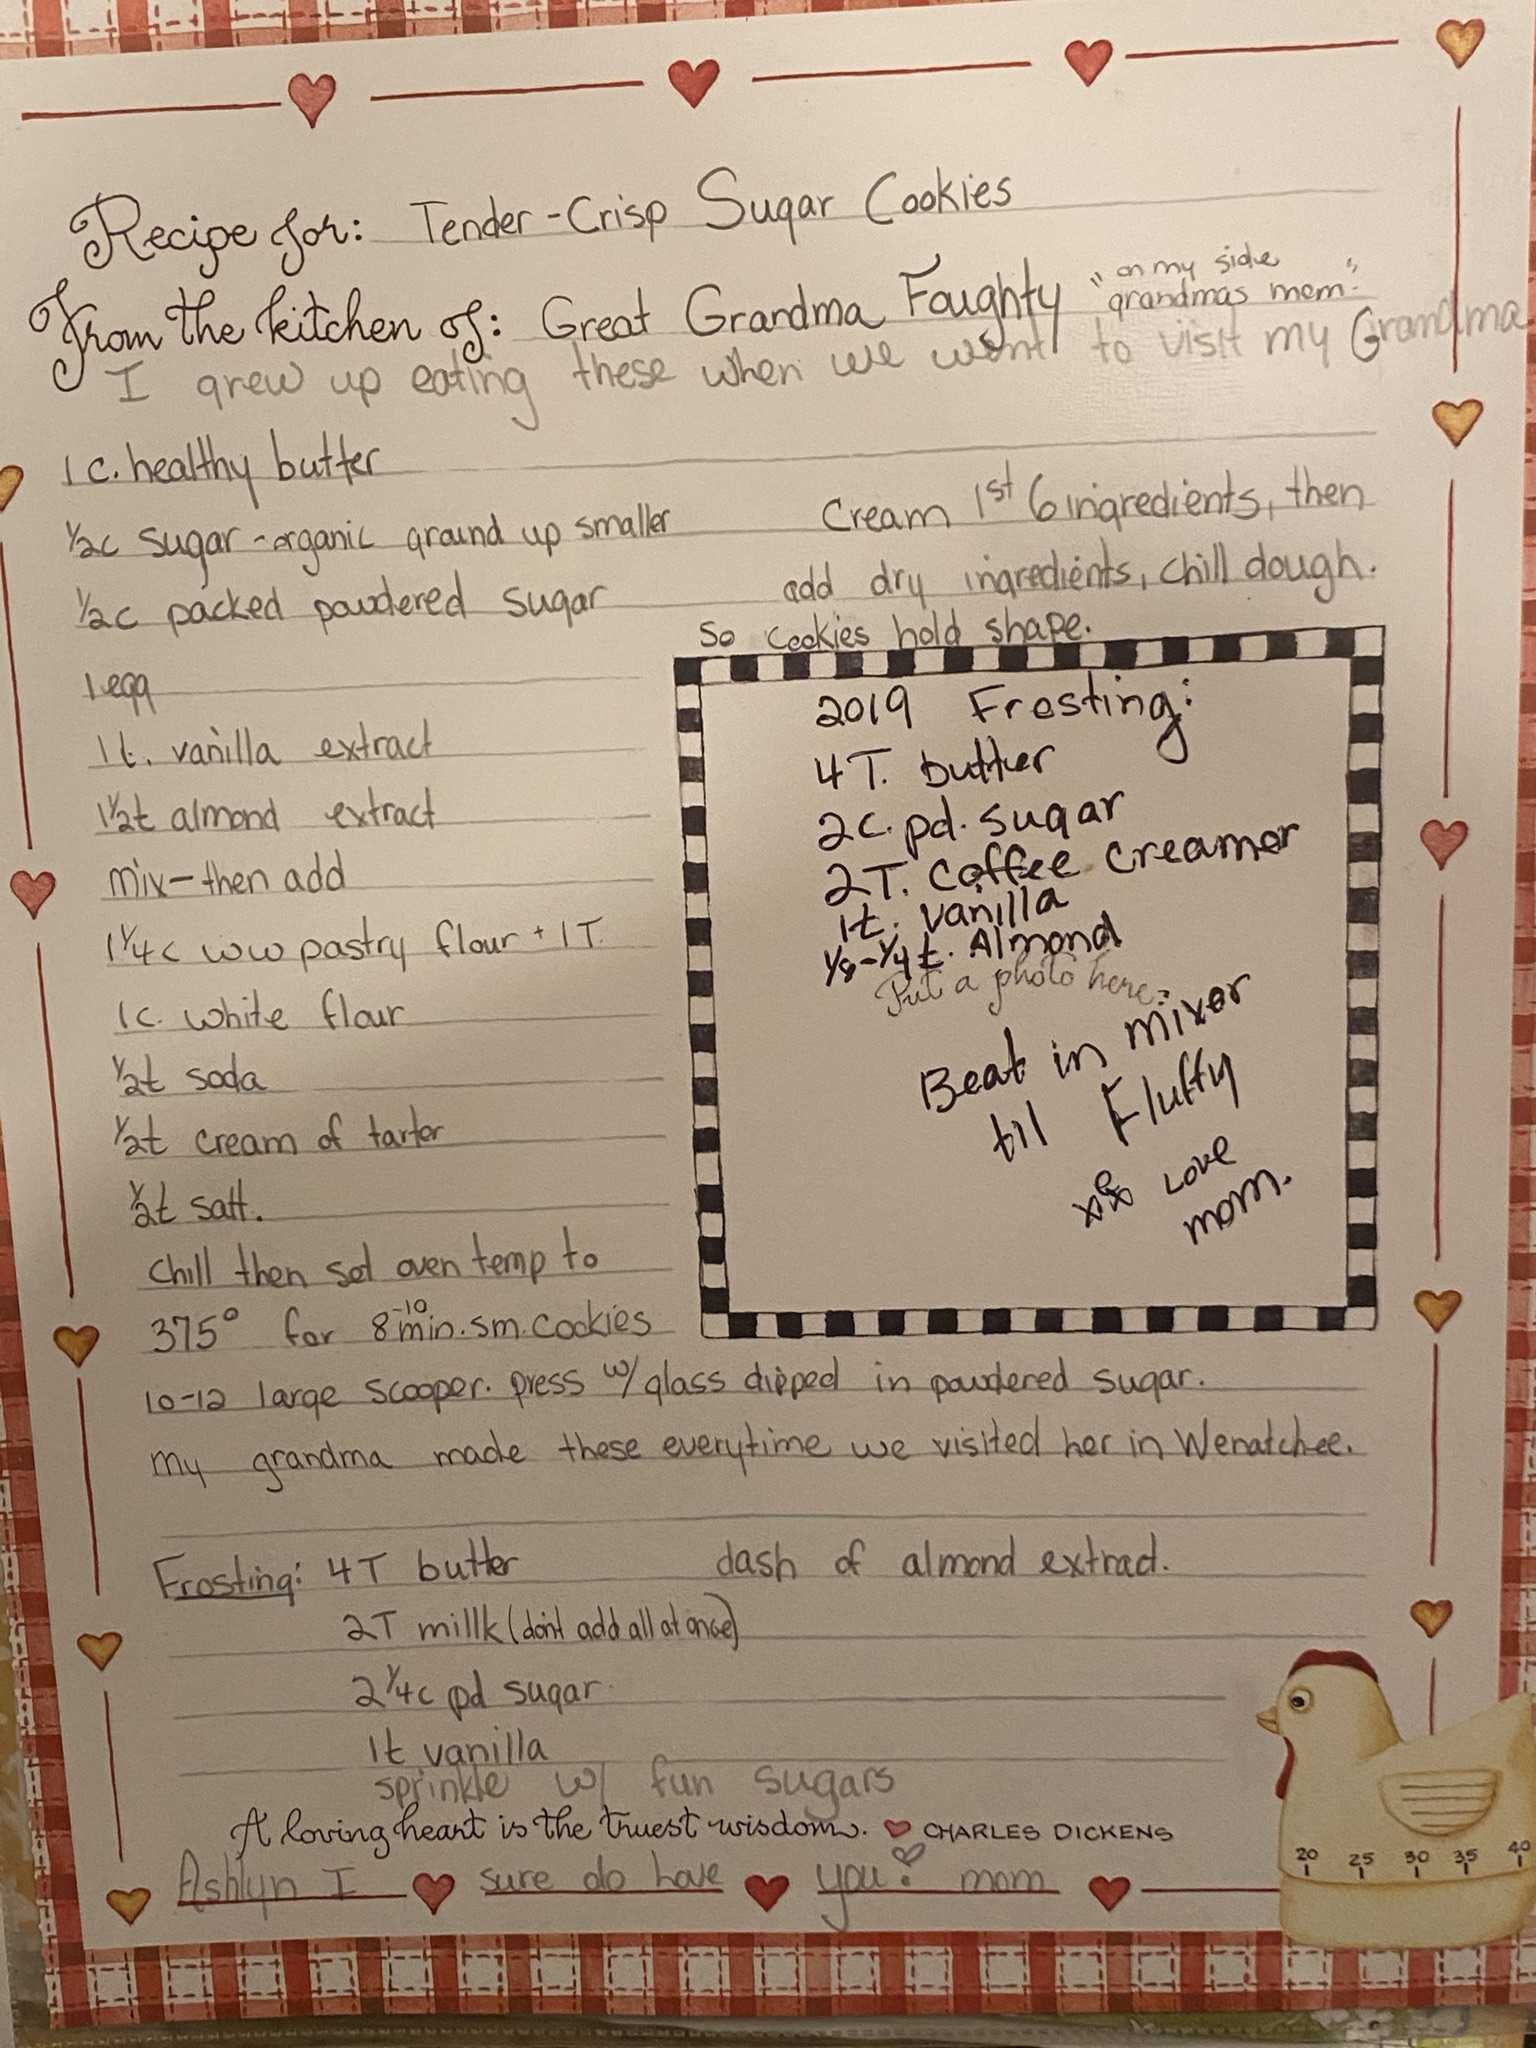 Recipe for: Tender-Crisp Sugar Cookies
From the kitchen of: Great Grandma Foughty "on my side grandmas mom."
I grew up eating these when we went to visit my Grandma
1 c. healthy butter
1/2c sugar - organic ground up smaller
1/2c packed powdered sugar
1 egg
1t. vanilla extract
1 1/2t almond extract
mix - then add
1 1/4c ww pastry flour + 1T.
1c. white flour
1/2t soda
1/2t cream of tarter
1/2t salt.
Chill then set oven temp to
375° for 8-10 min. sm. cookies
10-12 large scooper. press w/ glass dipped in powdered sugar.
my grandma made these everytime we visited her in Wenatchee.
Cream 1st 6 ingredients, then
add dry ingredients, chill dough.
So cookies hold shape.
2019 Frosting:
4T. butter
2c. pd. sugar
2T. Coffee Creamer
1t. vanilla
1/8-1/4t. Almond
Put a photo here.
Beat in mixer
til Fluffy
xoxo Love
mom.
Frosting: 4T butter
dash of almond extract.
2T millk (don't add all at once)
2 1/4c pd sugar
1t vanilla
sprinkle w/ fun sugars
A loving heart is the truest wisdom. CHARLES DICKENS
Ashlyn I sure do love you! mom
20 25 30 35 40